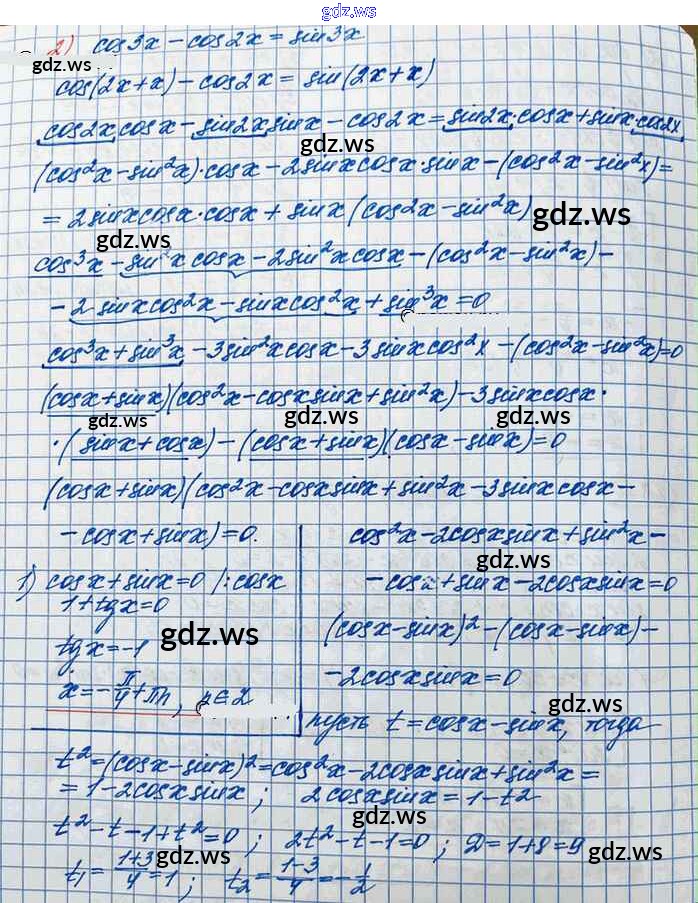 gdz.ws
2) cos3x - cos2x = sin3x
gdz.ws
cos(2x+x) - cos2x = sin(2x+x)
cos2x cosx - sin2x sinx - cos2x = sin2x·cosx + sinx·cos2x
gdz.ws
(cos²x - sin²x)·cosx - 2sinxcosx·sinx - (cos²x - sin²x) =
= 2sinxcosx·cosx + sinx(cos2x - sin²x)
gdz.ws
gdz.ws
cos³x - sin²x cosx - 2sin²x cosx - (cos²x - sin²x) -
- 2 sinxcos²x - sinxcos²x + sin³x = 0
cos³x + sin³x - 3sin²xcosx - 3sinxcos²x - (cos²x - sin²x) = 0
(cosx + sinx)(cos²x - cosxsinx + sin²x) - 3sinxcosx·
gdz.ws gdz.ws gdz.ws
·(sinx + cosx) - (cosx + sinx)(cosx - sinx) = 0
(cosx + sinx)(cos²x - cosxsinx + sin²x - 3sinxcosx -
- cosx + sinx) = 0.
1) cosx + sinx = 0 /:cosx
1 + tgx = 0
tgx = -1
gdz.ws
x = -π/4 + πn, n∈Z
cos²x - 2cosxsinx + sin²x -
gdz.ws
- cosx + sinx - 2cosxsinx = 0
(cosx - sinx)² - (cosx - sinx) -
- 2cosxsinx = 0
gdz.ws
пусть t = cosx - sinx, тогда
t² = (cosx - sinx)² = cos²x - 2cosxsinx + sin²x =
= 1 - 2cosxsinx; 2cosxsinx = 1 - t²
gdz.ws
t² - t - 1 + t² = 0; 2t² - t - 1 = 0; D = 1 + 8 = 9
gdz.ws gdz.ws
t₁ = (1+3)/4 = 1; t₂ = (1-3)/4 = -1/2